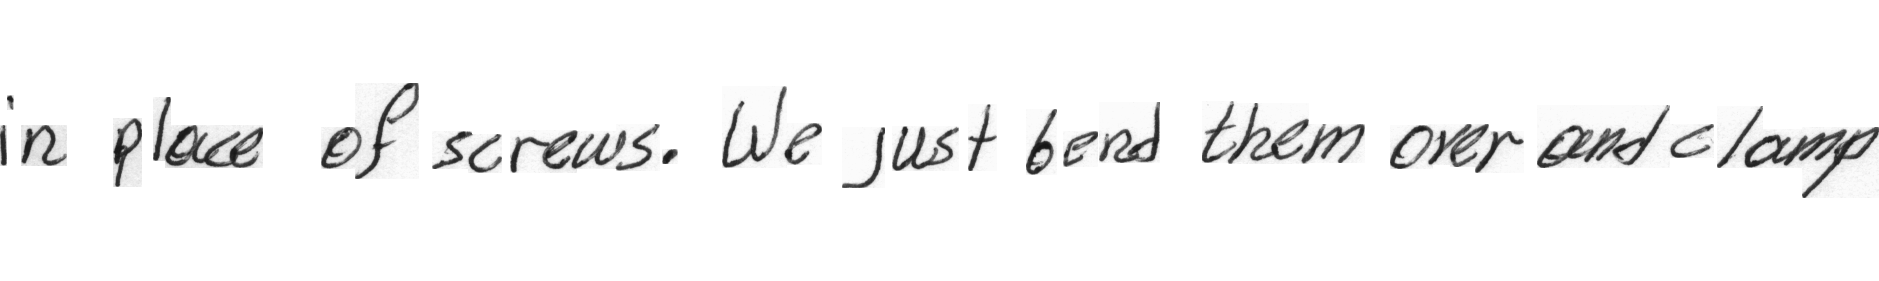 in place of screws. We just bend them over and clamp